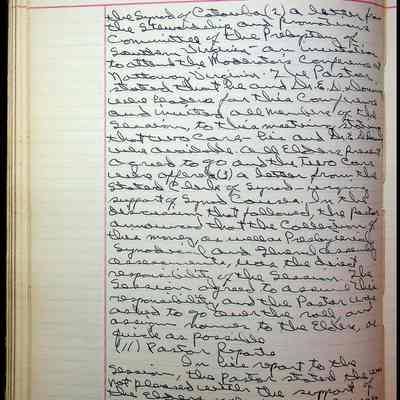 the Synod of Catawba (2) a letter from
the Stewardship and Promotion
Committee of the Presbytery of
Southern Virginia - an invitation
to attend the Moderators Conference at
Nottoway Virginia. The Pastor
stated that he and Dr. E. D.
were leaders for this Conference
and invited all members of the
Session, to this meeting, stating
that two cars - his and Dr.
were available. All Elders present
agreed to go and the two cars
were offered (3) a letter from the
Stated Clerk of Synod - urging
support of Synod Causes. In the
discussion that followed, the Pastor
announced that the Collection of
this money, as well as Presbyterial,
Synodical, and General Assembly
assessments, was the direct
responsibility of the Session. The
Session agreed to assume this
responsibility and the Pastor was
asked to go over the roll, and
assign names to the Elders, as
quick as possible
(11) Pastor Reports
In his report to the
Session, the Pastor stated he was
not pleased with the support of
the Elders